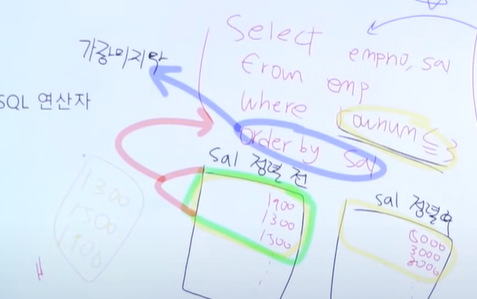 Select empno, sal
From emp
Where rownum ≤ 3
order by sal
가장마지막
SQL 연산자
sal 정렬 전
1300
1500
sal 정렬후
5000
3000
3000
1300
1500